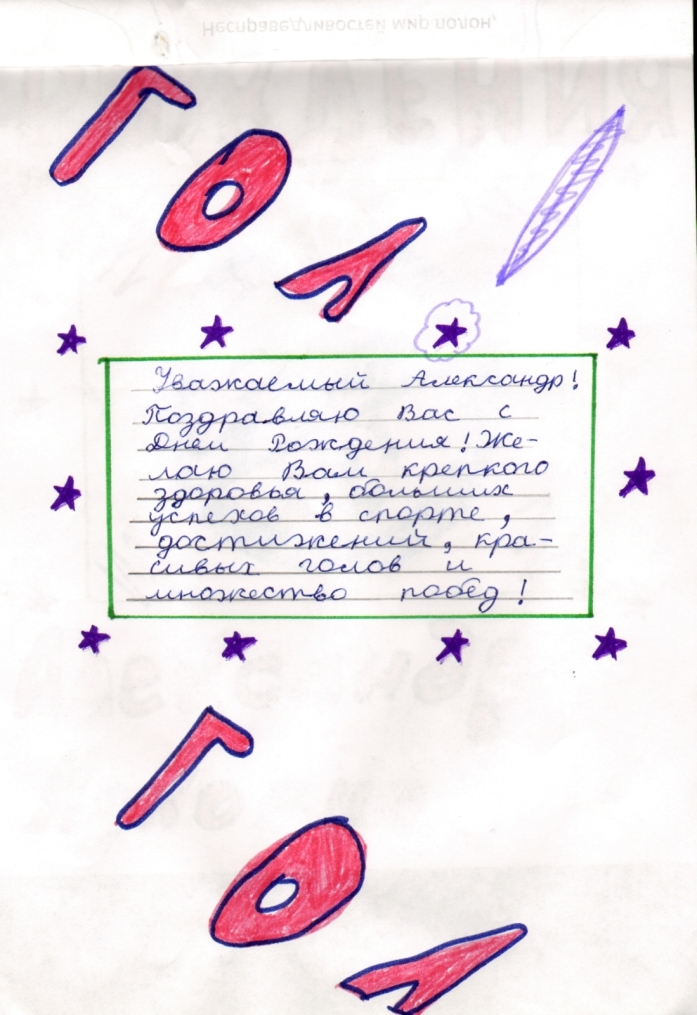 Несправедливостей мир полон,
ГОЛ
Уважаемый Александр!
Поздравляю Вас с
Днем Рождения! Же-
лаю Вам крепкого
здоровья, больших
успехов в спорте,
достижений, кра-
сивых голов и
множество побед!
ГОЛ